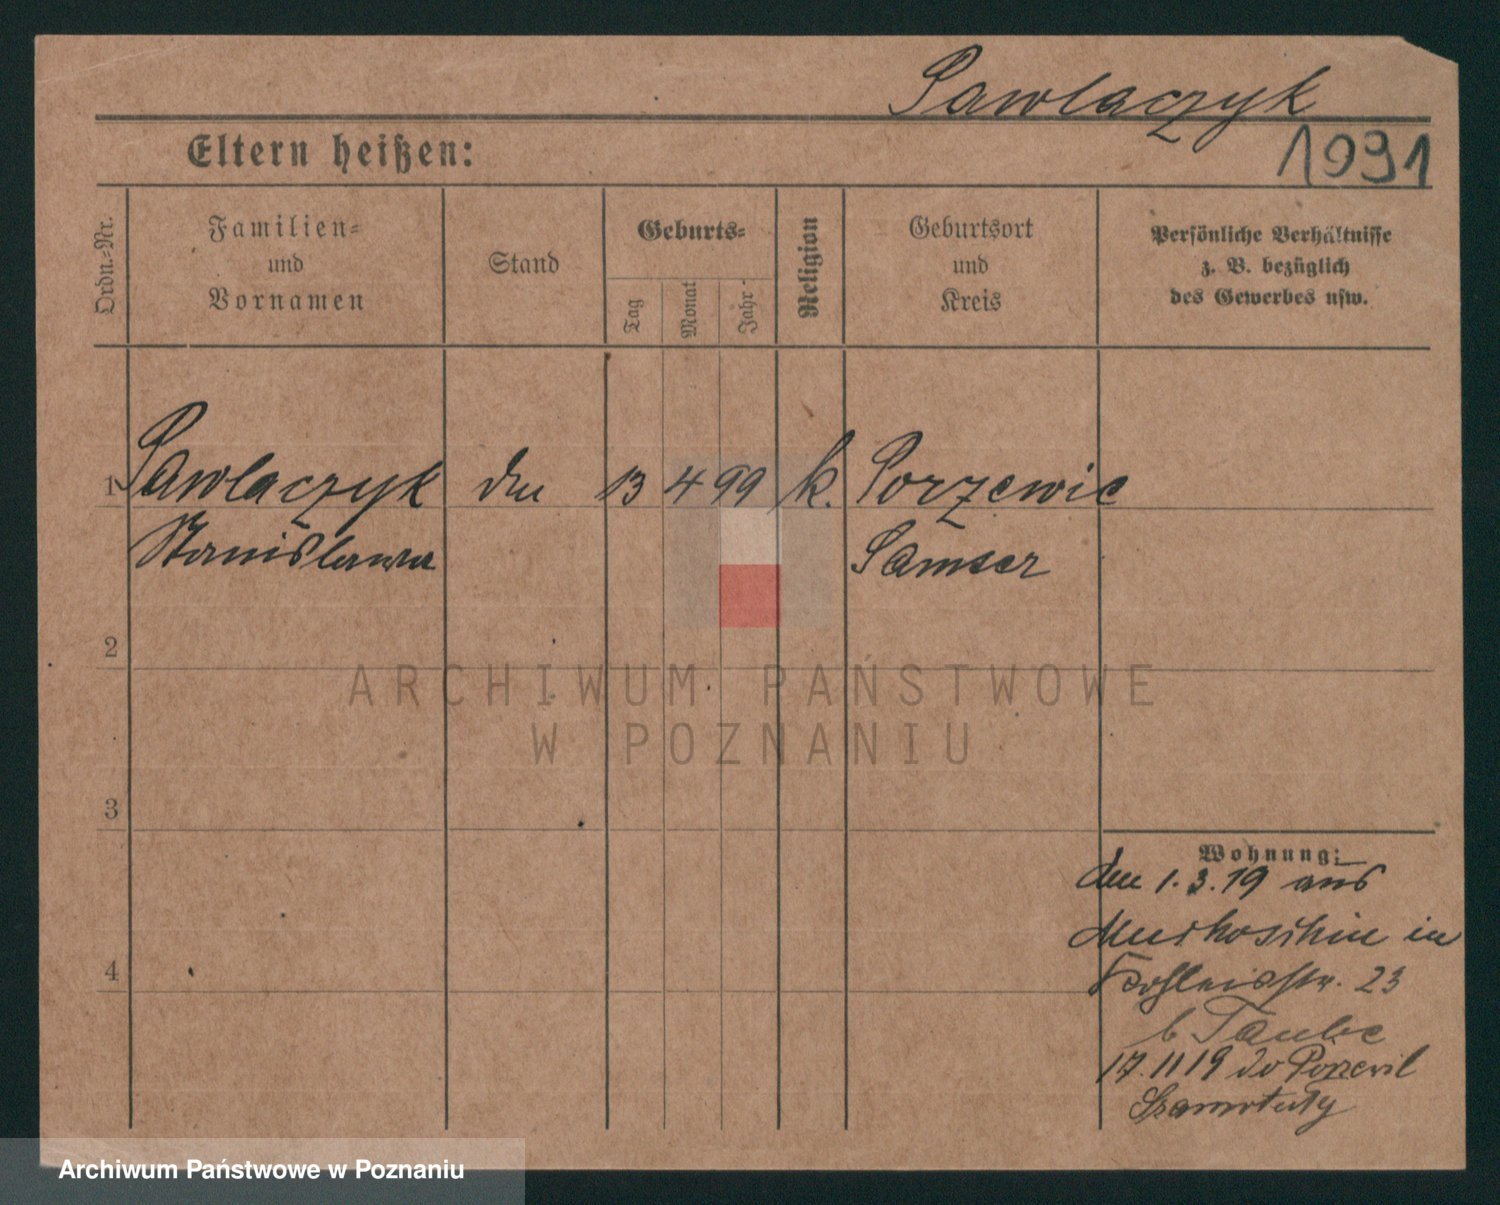 Pawlaczyk
1931
Eltern heißen:
Ordn.-Nr.
Familien-
und
Vornamen
Stand
Geburts-
Tag
Monat
Jahr
Religion
Geburtsort
und
Kreis
Persönliche Verhältnisse
z. B. bezüglich
des Gewerbes usw.
1 Pawlaczyk 13 4 99 k. Porzewic
Stanislawa Samter
2
ARCHIWUM PAŃSTWOWE
W POZNANIU
3
Wohnung:
den 1.3.19 aus
in
23
b Taube
17.11 19 do
Szamotuły
4
Archiwum Państwowe w Poznaniu